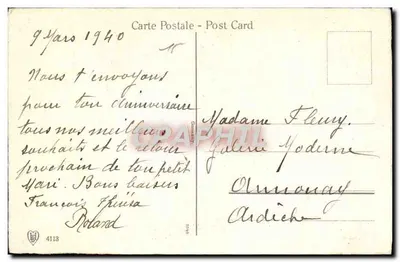 Carte Postale - Post Card
9 Mars 1940
Nous t'envoyons
pour ton anniversaire
tous nos meilleurs
souhaits et le retour
prochain de ton petit
Mari. Bons baisers
François
Roland
Madame Fleury.
Galerie Moderne
Annonay
Ardèche
4113